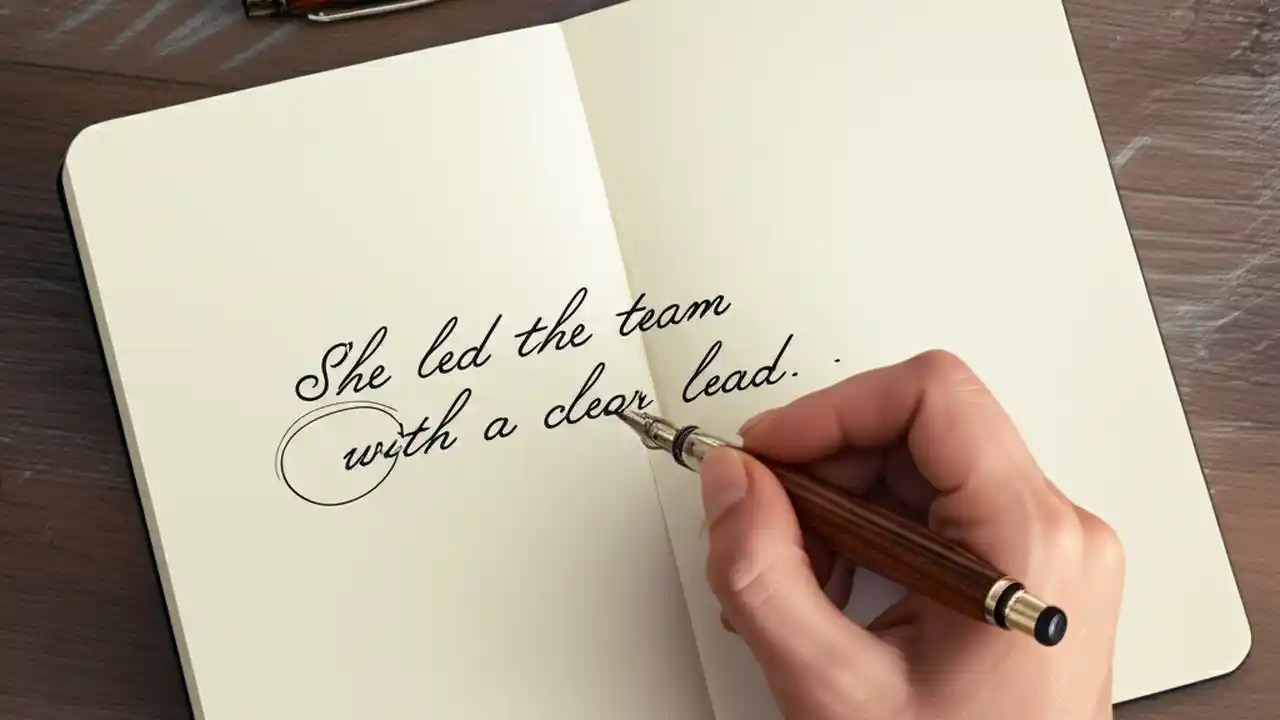 She led the team
with a clear lead.